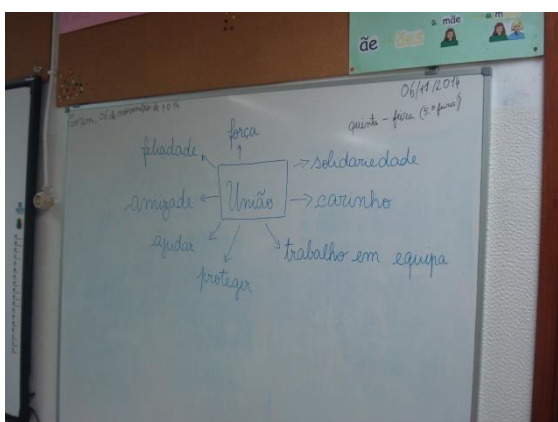 a mãe
ãe ães
06/11/2014
06 de novembro de 2014
quinta-feira (5.ª feira)
força
felicidade
solidariedade
amizade
União
carinho
ajudar
trabalho em equipa
proteger